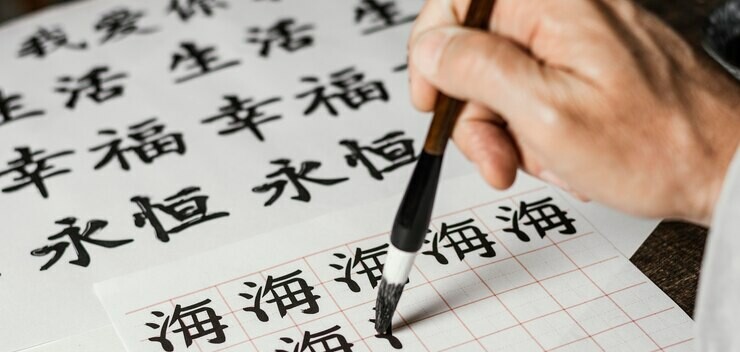 我爱你
生活生活生
幸福幸福
永恒永恒
海海海海海
海